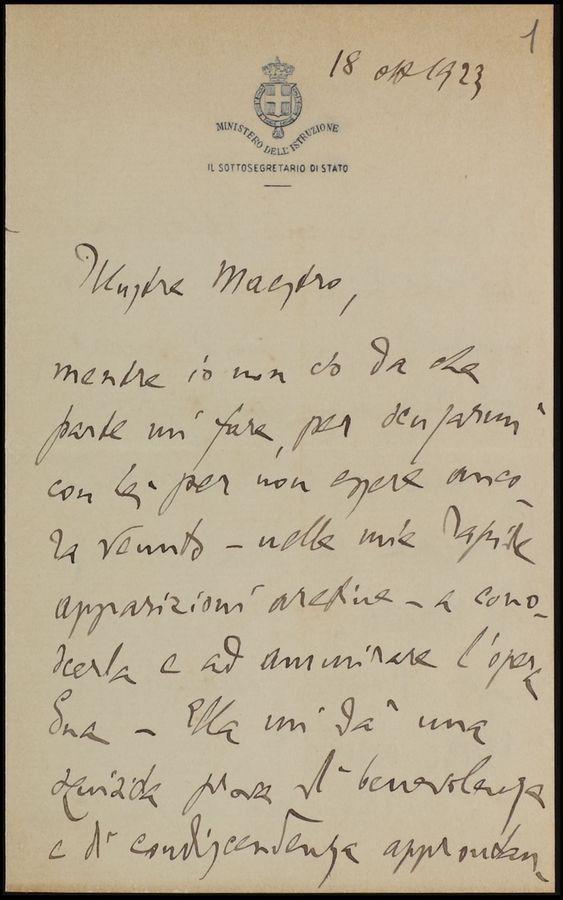 1
18 ott 1923
MINISTERO DELL'ISTRUZIONE
IL SOTTOSEGRETARIO DI STATO
Illustre Maestro,
mentre io non so da che
parte mi fare, per scusarmi
con Lei per non essere anco-
ra venuto – nelle mie rapide
apparizioni aretine – a cono-
scerla e ad ammirare l'opera
Sua – Ella mi dà una
squisita prova di benevolenza
e di condiscendenza